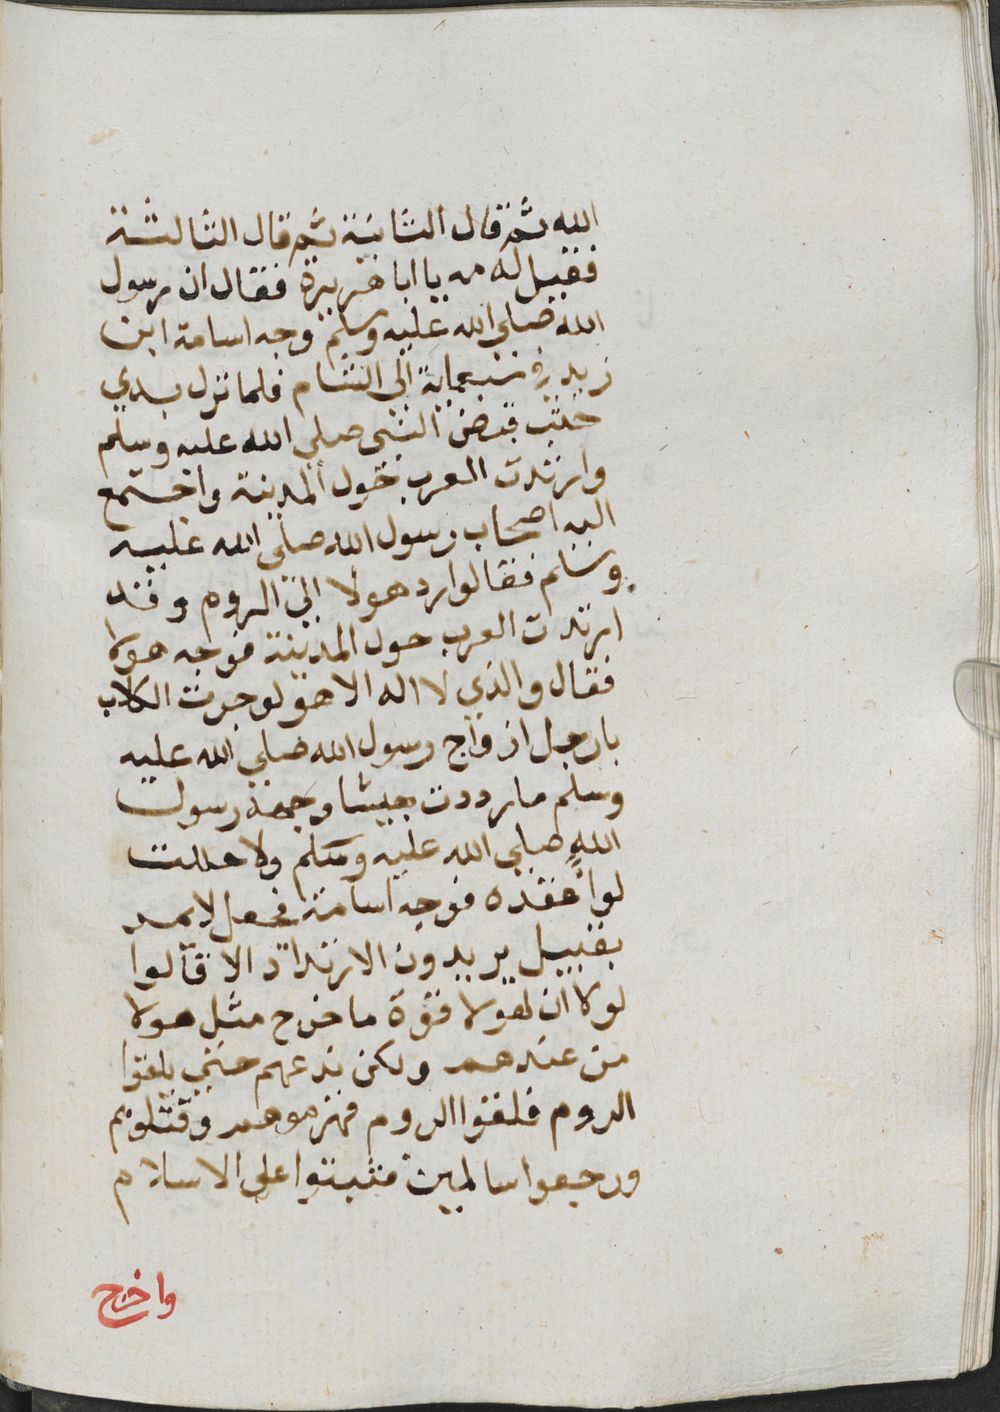 الله ثم قال الثانية ثم قال الثالثة
فقيل له مه يا ابا هريرة فقال ان رسول
الله صلى الله عليه وسلم وجه اسامة ابن
زيد في سبعماية الى الشام فلما نزل بذي
خشب قبض النبي صلى الله عليه وسلم
وارتدت العرب حول المدينة واجتمع
اليه اصحاب رسول الله صلى الله عليه
وسلم فقالوا رد هولا الى الروم وقد
ارتدت العرب حول المدينة فوجه هولا
فقال والذي لا اله الا هو لو جرت الكلاب
بارجل ازواج رسول الله صلى الله عليه
وسلم ما رددت جيشا وجهه رسول
الله صلى الله عليه وسلم ولا حللت
لواً عقده فوجه اسامة فجعل لا يمر
بقبيل يريدون الارتداد الا قالوا
لولا ان لهولا قوة ما خرج مثل هولا
من عندهم ولكن ندعهم حتى يلقوا
الروم فلقوا الروم فهزموهم وقتلوهم
ورجعوا سالمين فثبتوا على الاسلام
واخرج